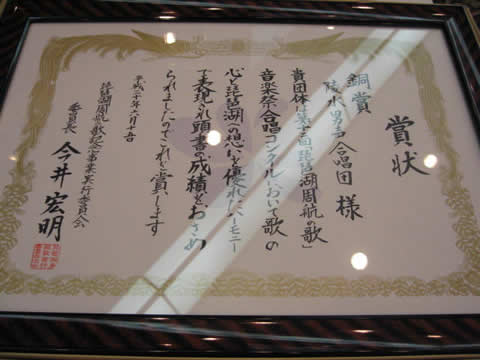 賞状
銅賞
陵水男声合唱団 様
貴団体は第十二回「琵琶湖周航の歌」
音楽祭合唱コンクールにおいて歌の
心と琵琶湖への想いを優れたハーモニー
で表現され頭書の成績をおさめ
られましたのでこれを賞します
平成二十年六月十五日
琵琶湖周航の歌記念事業実行委員会
委員長 今井宏明